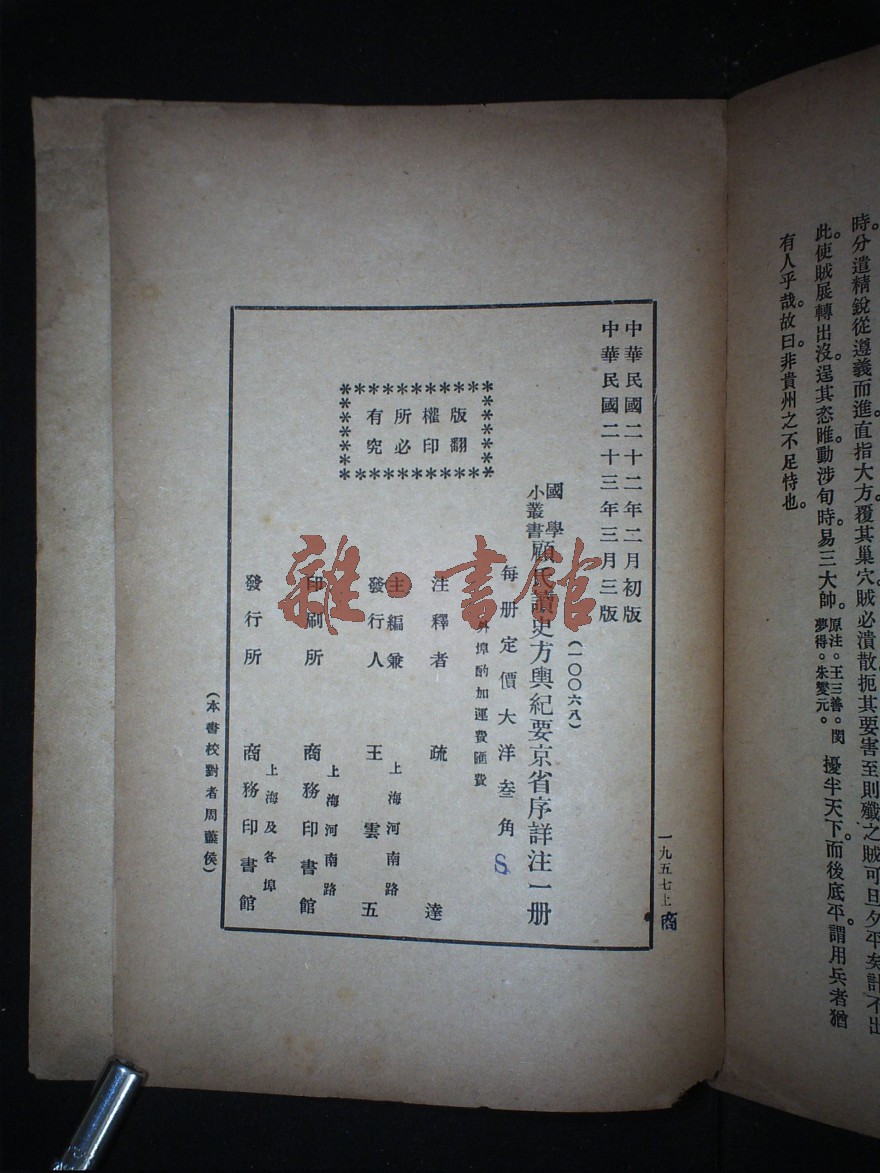 時。分遣精銳從遵義而進直指大方。覆其巢穴。賊必潰散扼其要害至則殲之賊可旦夕平矣計不出
此。使賊展轉出沒。逞其恣睢動涉旬時。易三大帥。原注。王三善。閔夢得。朱燮元。擾半天下。而後底平。謂用兵者猶
有人乎哉。故曰。非貴州之不足恃也。
中華民國二十二年二月初版
中華民國二十三年三月三版
(一〇〇六八)
國學小叢書 顧氏讀史方輿紀要京省序詳注一册
每册定價大洋叁角
埠酌加運費匯費
版權所有
翻印必究
注釋者 疏達
主編兼發行人 王雲五
上海河南路
印刷所 商務印書館
上海河南路
發行所 商務印書館
上海及各埠
(本書校對者周藎侯)
一九五七上
商
S
雜·書館